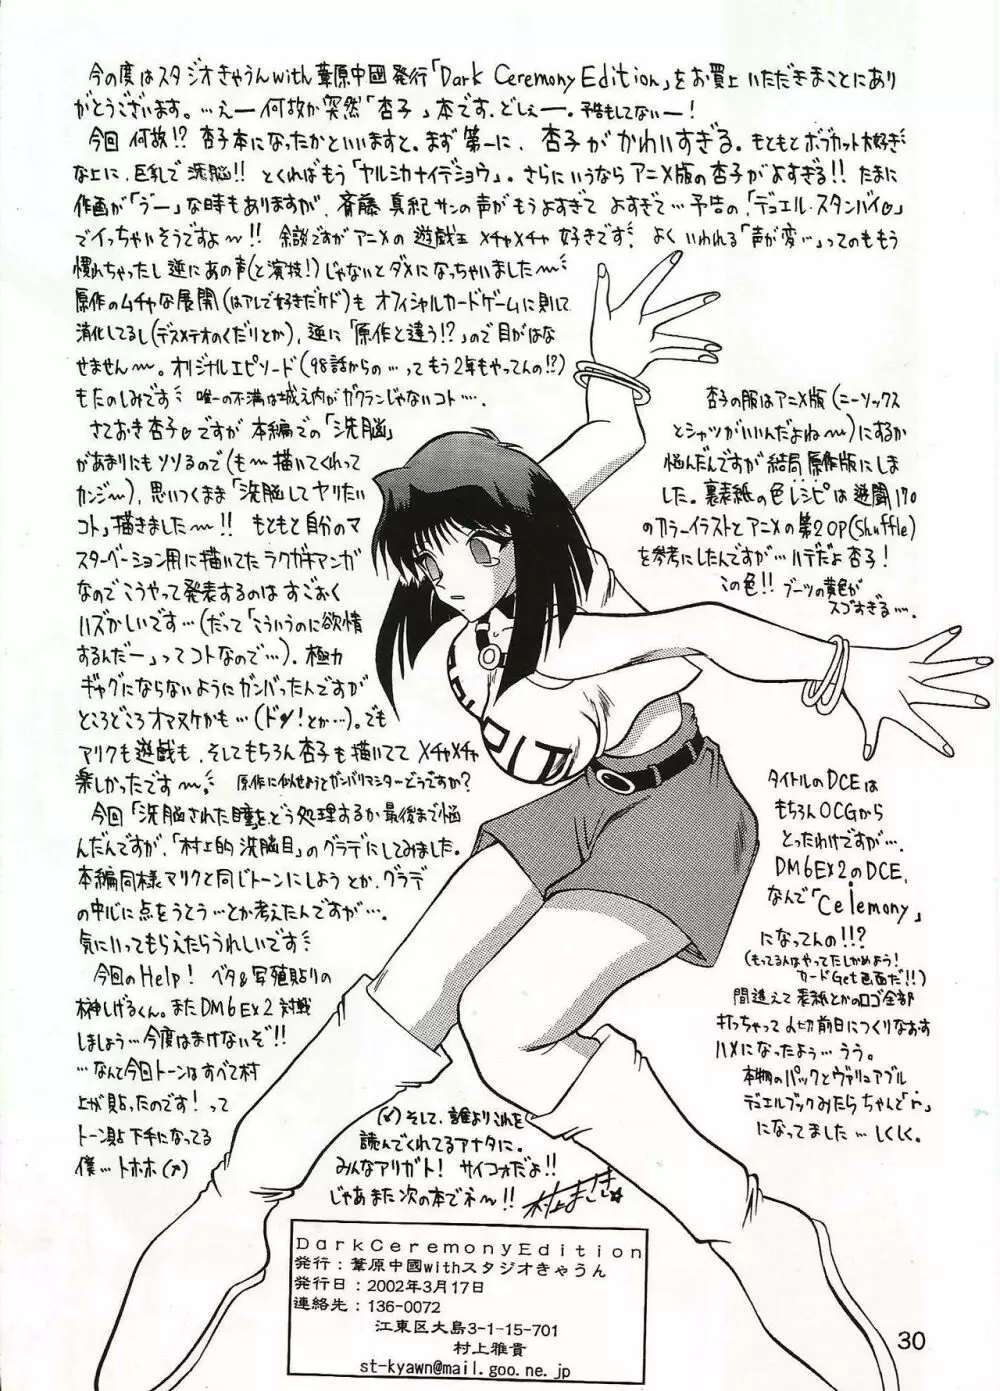 今の度はスタジオきゃうんwith葦原中國発行「Dark Ceremony Edition」をお買上いただきまことにあり
がとうございます。…えー何故か突然「杏子」本です。どしぇー。予告もしてないー!
今回何故!?杏子本になったかといいますと。まず第一に、杏子がかわいすぎる。もともとボブカット大好き
な上に、巨乳で洗脳!!とくればもう「ヤルシカナイデショウ」。さらにいうならアニメ版の杏子がよすぎる!!たまに
作画が「ゔー」な時もありますが、斎藤真紀サンの声がもうよすぎてよすぎて…予告の「デュエル・スタンバイ♡」
でイっちゃいそうですよ〜!!余談ですがアニメの遊戯王メチャメチャ好きです。よくいわれる「声が変…」ってのももう
慣れちゃったし逆にあの声(と演技!)じゃないとダメになっちゃいました〜
原作のムチャな展開(はアレで好きだケド)もオフィシャルカードゲームに則して
消化してるし(デスメテオのくだりとか)、逆に「原作と違う!?」ので目がはな
せません〜。オリジナルエピソード(98話からの…ってもう2年もやってんの!!?)
もたのしみです 唯一の不満は城之内がガクランじゃないコト…。
さておき杏子♡ですが本編での「洗脳」
があまりにもソソるので(も〜描いてくれって
カンジ〜)、思いつくまま「洗脳してヤりたい
コト」描きました〜!!もともと自分のマ
スターベーション用に描いてたラクガキマンガ
なのでこうやって発表するのはすごおく
ハズかしいです…(だって「こういうのに欲情
するんだー」ってコトなので…)。極力
ギャグにならないようにガンバったんですが
ところどころオマヌケかも…(ドン!とか…)。でも
マリクも遊戯も、そしてもちろん杏子も描いててメチャメチャ
楽しかったです〜。原作に似せようとガンバリマシターどうですか?
今回「洗脳された瞳」をどう処理するか最後まで悩
んだんですが、「村上的洗脳目」のグラデにしてみました。
本編同様マリクと同じトーンにしようとか、グラデ
の中心に点をうとう…とか考えたんですが…。
気にいってもらえたらうれしいです
今回のHelp! ベタ&写殖貼りの
榊しげるくん。またDM6EX2対戦
しましょう…今度はまけないぞ!!
…なんと今回トーンはすべて村
上が貼ったのです!って
トーン貼よ下手になってる
僕…トホホ(〆)
杏子の服はアニメ版(ニーソックス
とシャツがいいんだよね〜)にするか
悩んだんですが結局原作版にしま
した。裏表紙の色レシピは遊闘170
のカラーイラストとアニメの第2OP(Shuffle)
を参考にしたんですが…ハデだよ杏子!
この色!!ブーツの黄色が
スゴすぎる…。
タイトルのDCEは
もちろんOCGから
とったわけですが…。
DM6EX2のDCE、
なんで「Celemony」
になってんの!!!?
(もってる人はやってたしかめよう!
カードGet画面だ!!)
間違えて表紙とかのロゴ全部
打っちゃって〆切前日につくりなおす
ハメになったよう…うう。
本物のパックとヴァリュアブル
デュエルブックみたらちゃんと「r」
になってました…しくしく。
(〆)そして、誰よりこれを
読んでくれてるアナタに。
みんなアリガト!サイコオだよ!!
じゃあまた次の本でネ〜!!村上まさき☆
DarkCeremonyEdition
発行:葦原中國withスタジオきゃうん
発行日:2002年3月17日
連絡先:136-0072
江東区大島3-1-15-701
村上雅貴
st-kyawn@mail.goo.ne.jp
30